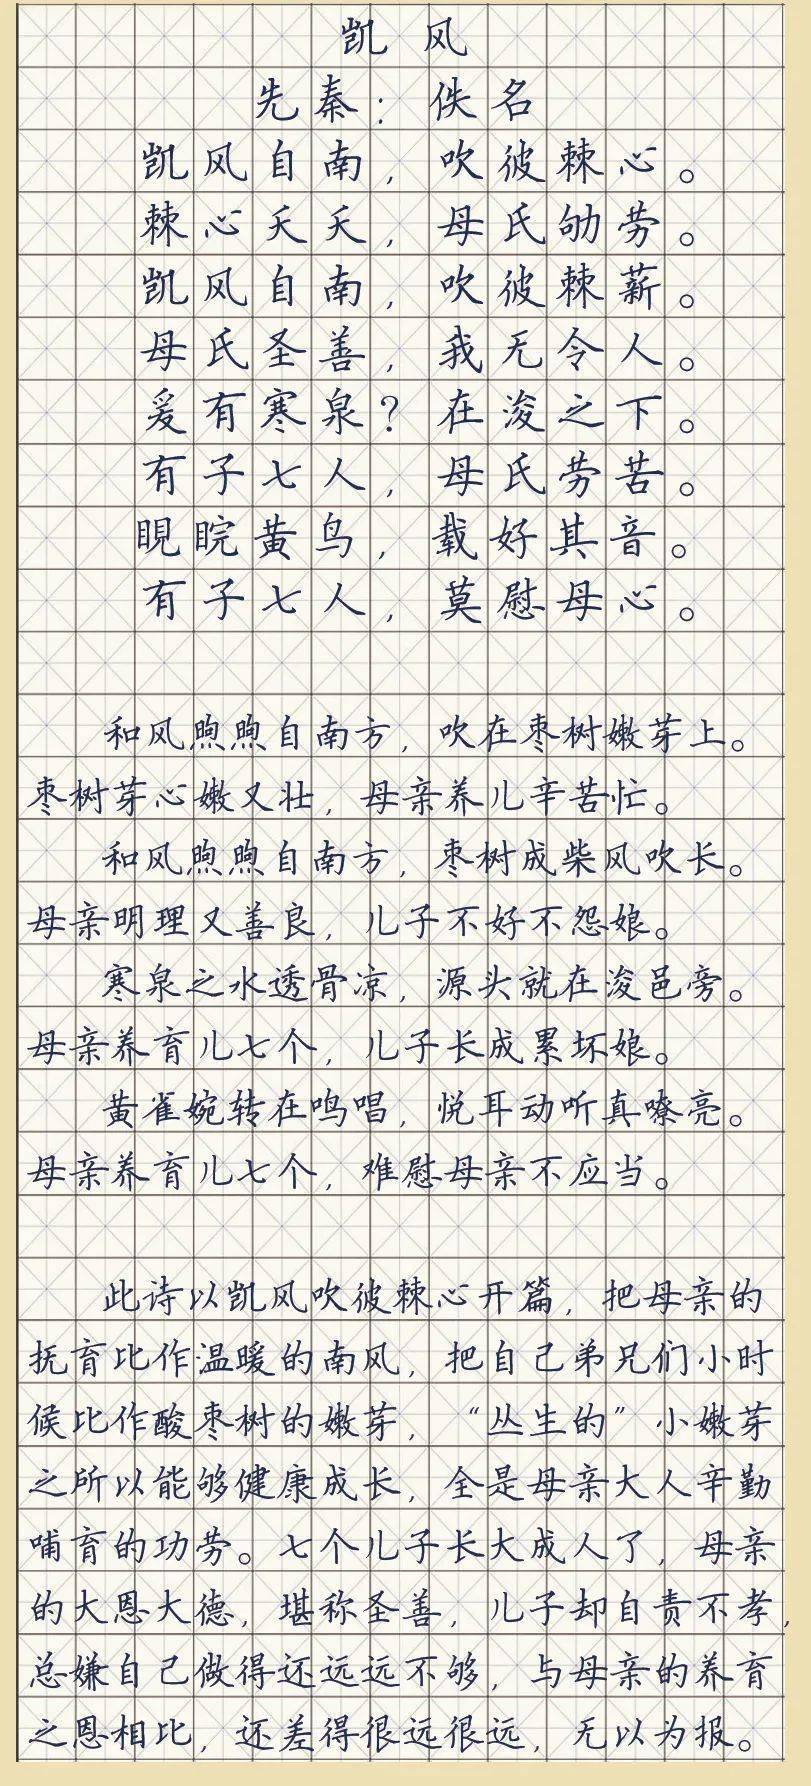 凯风
先秦：佚名
凯风自南，吹彼棘心。
棘心夭夭，母氏劬劳。
凯风自南，吹彼棘薪。
母氏圣善，我无令人。
爰有寒泉？在浚之下。
有子七人，母氏劳苦。
睍睆黄鸟，载好其音。
有子七人，莫慰母心。
和风煦煦自南方，吹在枣树嫩芽上。
枣树芽心嫩又壮，母亲养儿辛苦忙。
和风煦煦自南方，枣树成柴风吹长。
母亲明理又善良，儿子不好不怨娘。
寒泉之水透骨凉，源头就在浚邑旁。
母亲养育儿七个，儿子长成累坏娘。
黄雀婉转在鸣唱，悦耳动听真嘹亮。
母亲养育儿七个，难慰母亲不应当。
此诗以凯风吹彼棘心开篇，把母亲的
抚育比作温暖的南风，把自己弟兄们小时
候比作酸枣树的嫩芽，“丛生的”小嫩芽
之所以能够健康成长，全是母亲大人辛勤
哺育的功劳。七个儿子长大成人了，母亲
的大恩大德，堪称圣善，儿子却自责不孝，
总嫌自己做得还远远不够，与母亲的养育
之恩相比，还差得很远很远，无以为报。